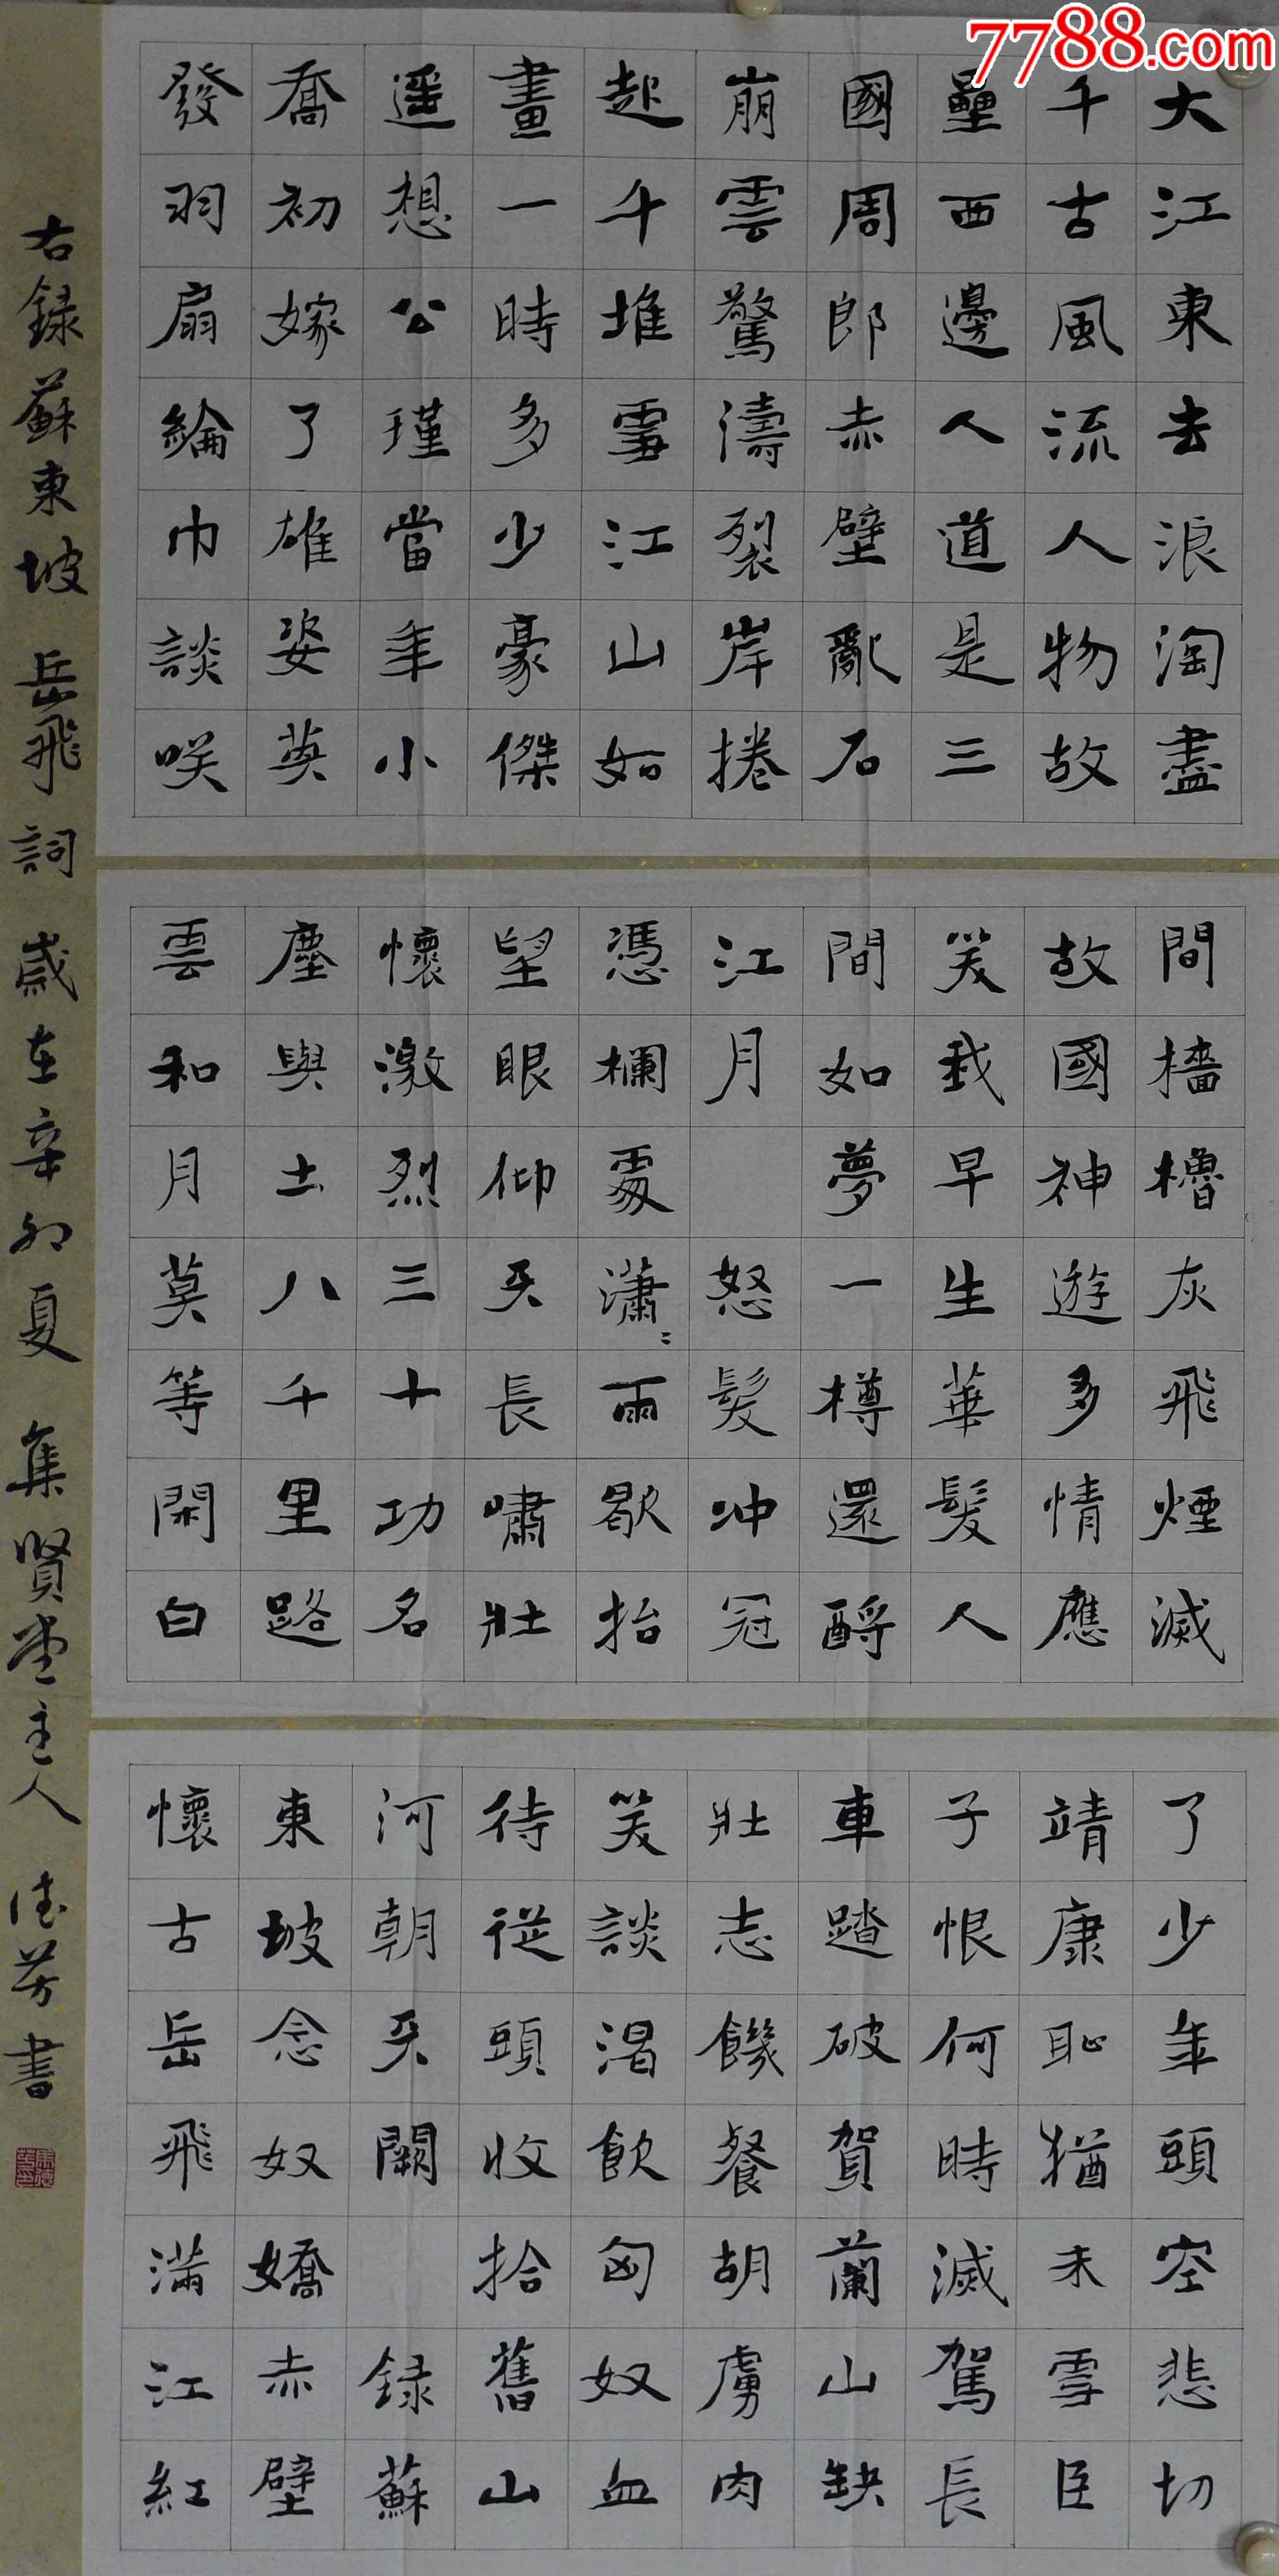 7788.com
大江東去浪淘盡
千古風流人物故
壘西邊人道是三
國周郎赤壁亂石
崩雲驚濤裂岸捲
起千堆雪江山如
畫一時多少豪傑
遥想公瑾當年小
喬初嫁了雄姿英
發羽扇綸巾談咲
間檣櫓灰飛煙滅
故國神遊多情應
笑我早生華髮人
間如夢一樽還酹
江月 怒髮冲冠
憑欄處瀟〻雨歇抬
望眼仰天長嘯壯
懷激烈三十功名
塵與土八千里路
雲和月莫等閑白
了少年頭空悲切
靖康恥猶未雪臣
子恨何時滅駕長
車踏破賀蘭山缺
壯志饑餐胡虜肉
笑談渴飲匈奴血
待從頭收拾舊山
河朝天闕 録蘇
東坡念奴嬌赤壁
懷古岳飛滿江紅
右録蘇東坡 岳飛詞 歲在辛卯夏 集賢堂主人 德芳書